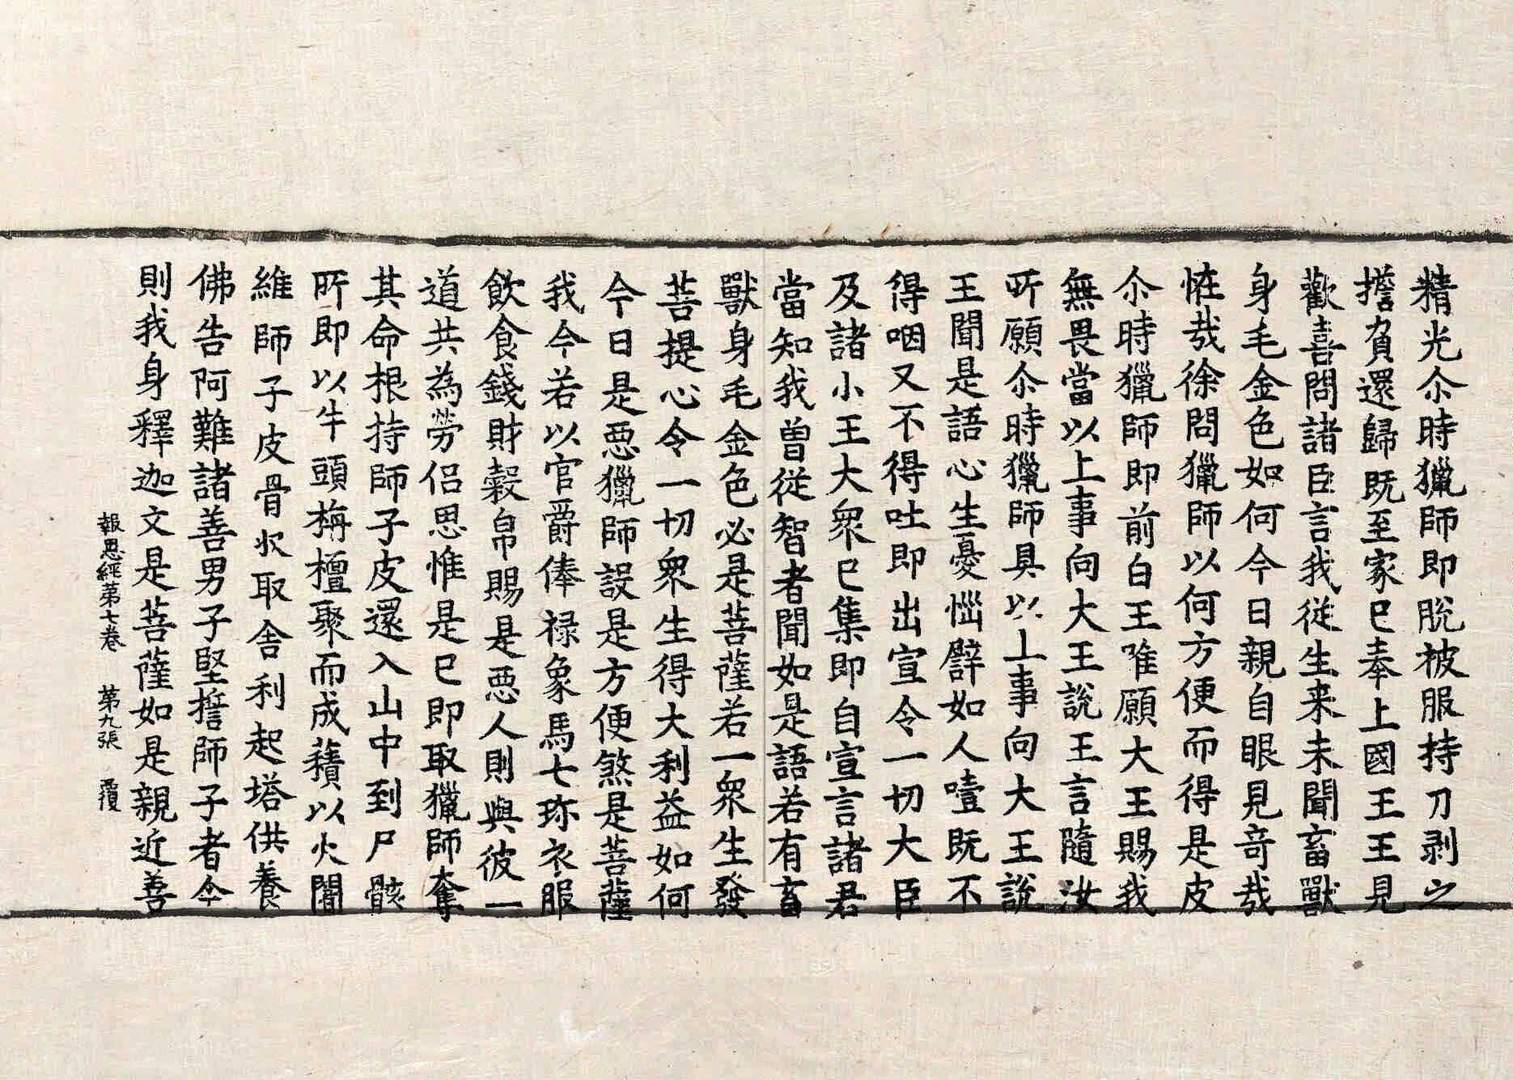 精光尒時獵師即脫被服持刀剥之
擔負還歸既至家已奉上國王王見
歡喜問諸臣言我從生来未聞畜獸
身毛金色如何今日親自眼見竒𢦏
恠𢦏徐問獵師以何方便而得是皮
尒時獵師即前白王唯願大王賜我
無畏當以上事向大王說王言隨汝
所願尒時獵師具以上事向大王說
王聞是語心生憂惱譬如人噎既不
得咽又不得吐即出宣令一切大臣
及諸小王大衆已集即自宣言諸君
當知我曾從智者聞如是語若有畜
獸身毛金色必是菩薩若一衆生發
菩提心令一切衆生得大利益如何
今日是惡獵師設是方便煞是菩薩
我今若以官爵俸禄象馬七珎衣服
飲食錢財穀帛賜是惡人則與彼一
道共為勞侶思惟是已即取獵師奪
其命根持師子皮還入山中到尸骸
所即以牛頭栴檀聚而成𧂐以火闍
維師子皮骨收取舍利起塔供養
佛告阿難諸善男子堅誓師子者今
則我身釋迦文是菩薩如是親近善
報恩經第七卷 第九張 覆